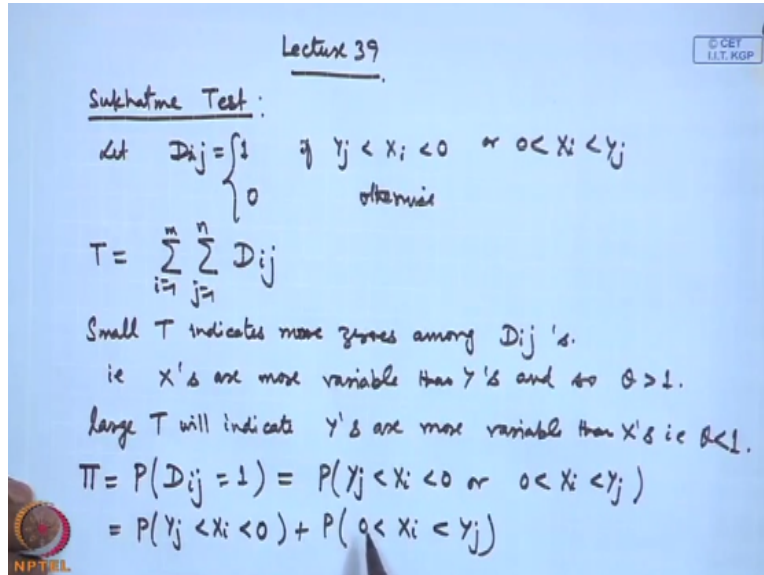 Lecture 39
© CET
I.I.T. KGP
Sukhatme Test :
Let Dij = { 1 if Yj < Xi < 0 or 0 < Xi < Yj
0 otherwise
T = ∑_{i=1}^{m} ∑_{j=1}^{n} Dij
Small T indicates more zeroes among Dij 's.
ie X's are more variable than Y's and so θ > 1.
large T will indicate Y's are more variable than X's ie θ<1.
Π = P(Dij = 1) = P(Yj < Xi < 0 or 0 < Xi < Yj)
= P(Yj < Xi < 0) + P(0 < Xi < Yj)
NPTEL